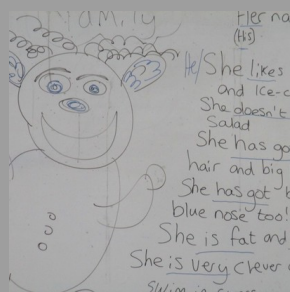 Family
Her na
(His)
He/She likes
and Ice-c
She doesn't
Salad
She has go
hair and big
She has got b
blue nose too!
She is fat and
She is very clever
swim